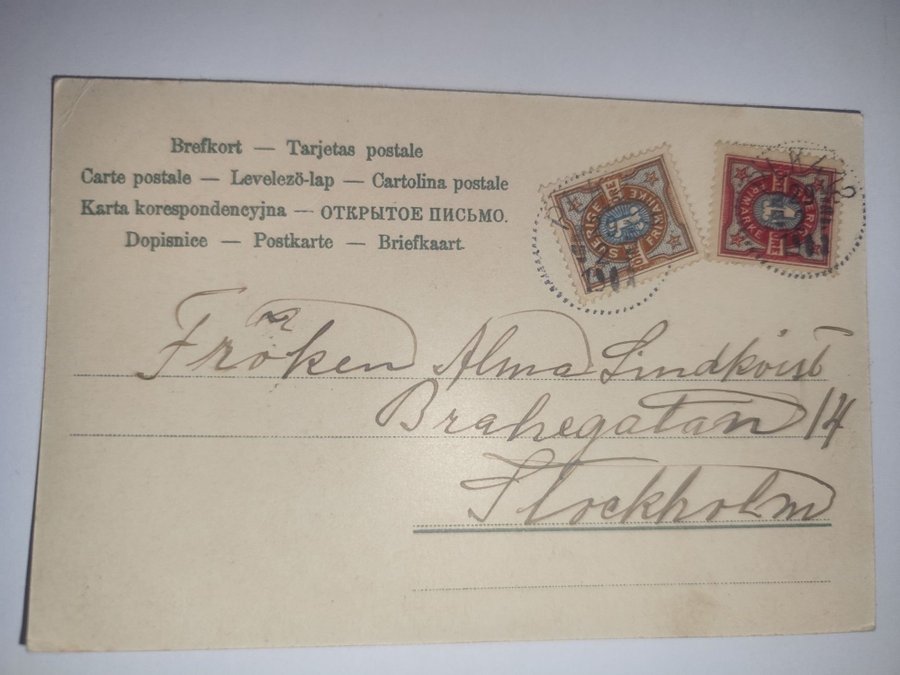 Brefkort — Tarjetas postale
Carte postale — Levelezö-lap — Cartolina postale
Karta korespondencyjna — ОТКРЫТОЕ ПИСЬМО.
Dopisnice — Postkarte — Briefkaart.
SVERIGE
FRIMÄRKE
FRIMÄRKE
Fröken Alma Lindkvist
Brahegatan 14
Stockholm